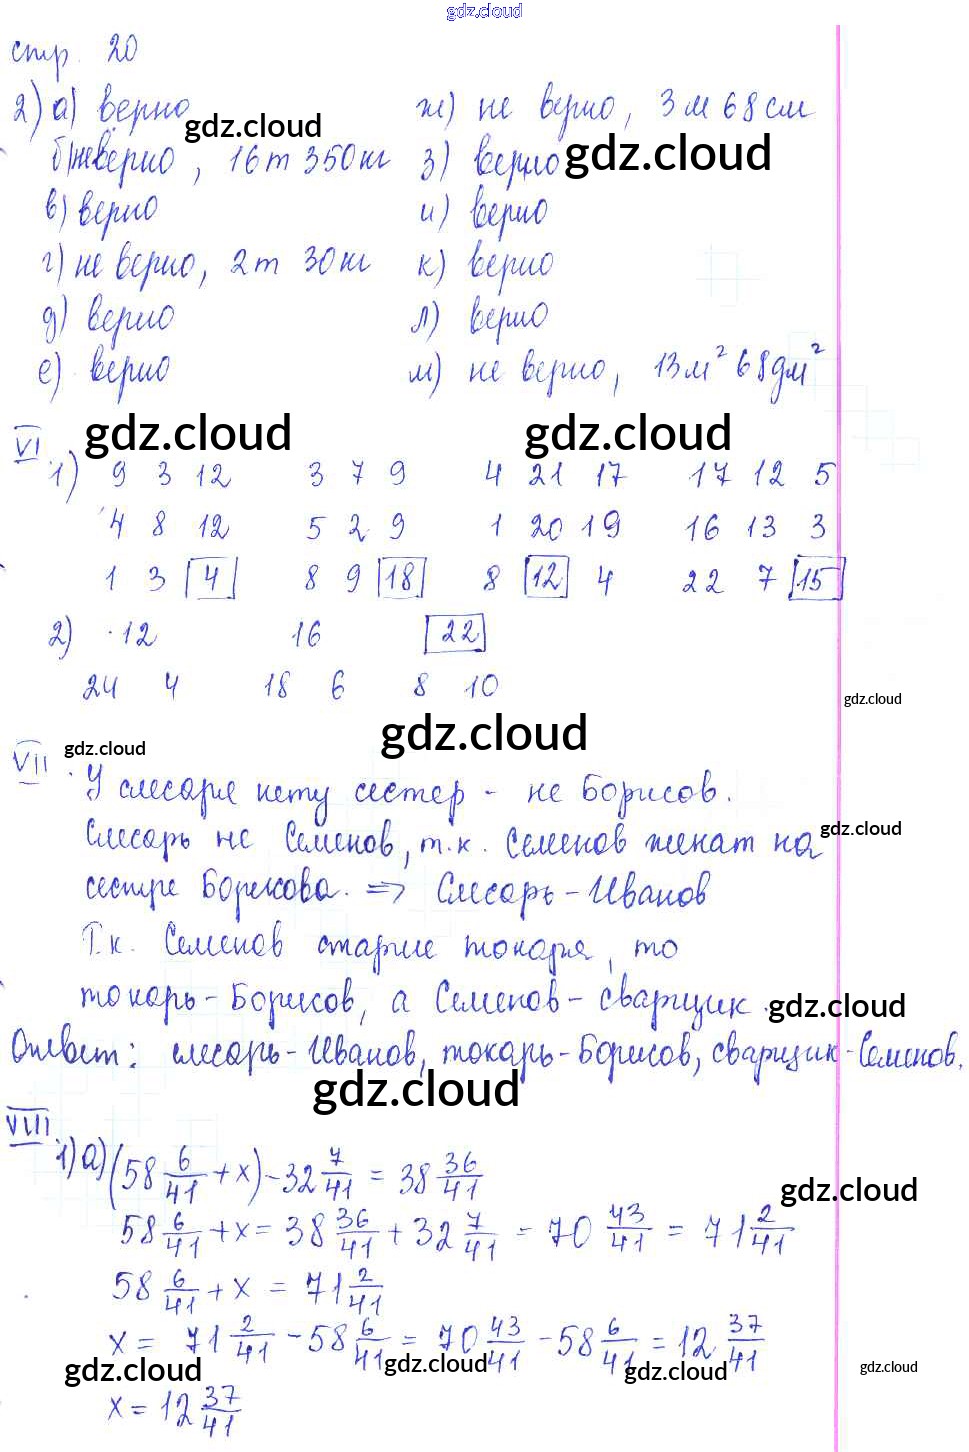 gdz.cloud
стр. 20
2) а) верно ж) не верно, 3 м 68 см
gdz.cloud gdz.cloud
б) неверно, 16 т 350 кг з) верно
в) верно и) верно
г) не верно, 2 т 30 кг к) верно
д) верно л) верно
е) верно м) не верно, 13 м² 68 дм²
gdz.cloud gdz.cloud
VI
1) 9 3 12 3 7 9 4 21 17 17 12 5
4 8 12 5 2 9 1 20 19 16 13 3
1 3 4 8 9 18 8 12 4 22 7 15
2) 12 16 22
24 4 18 6 8 10
gdz.cloud
gdz.cloud gdz.cloud
VII У слесаря нету сестер - не Борисов.
Слесарь не Семенов, т.к. Семенов женат на
gdz.cloud
сестре Борисова. => Слесарь - Иванов
Т.к. Семенов старше токаря, то
токарь - Борисов, а Семенов - сварщик.
gdz.cloud
Ответ: слесарь - Иванов, токарь - Борисов, сварщик - Семенов.
gdz.cloud
VIII
1) а) (58 6/41 + x) - 32 7/41 = 38 36/41
gdz.cloud
58 6/41 + x = 38 36/41 + 32 7/41 = 70 43/41 = 71 2/41
58 6/41 + x = 71 2/41
x = 71 2/41 - 58 6/41 = 70 43/41 - 58 6/41 = 12 37/41
gdz.cloud gdz.cloud gdz.cloud gdz.cloud
x = 12 37/41